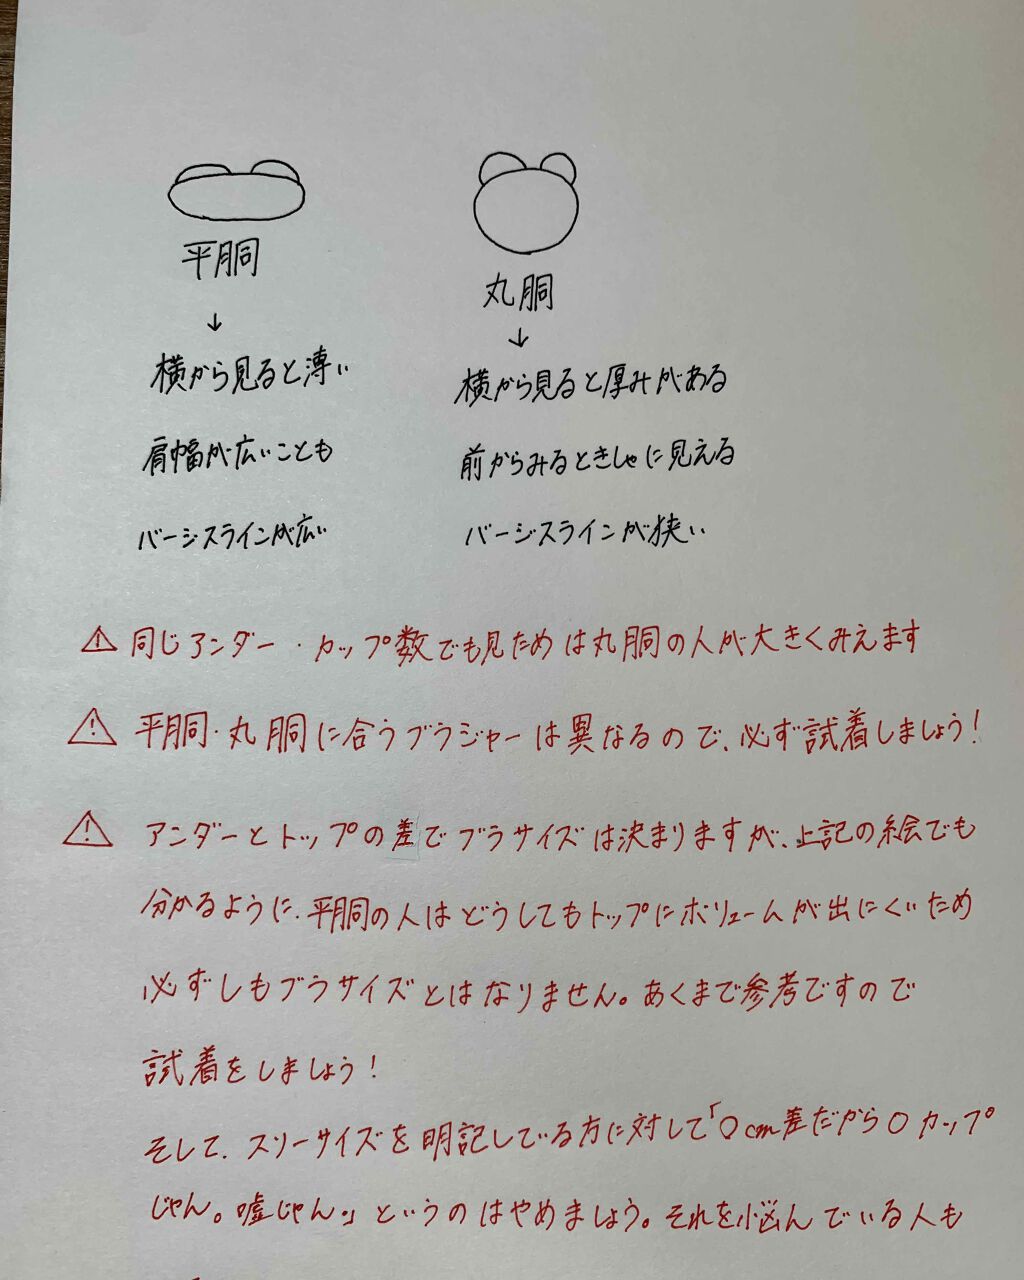 平胴
↓
横から見ると薄い
肩幅が広いことも
バージスラインが広い
丸胴
↓
横から見ると厚みがある
前からみるときしゃに見える
バージスラインが狭い
⚠ 同じアンダー・カップ数でも見ためは丸胴の人が大きくみえます
⚠ 平胴・丸胴に合うブラジャーは異なるので、必ず試着しましょう!
⚠ アンダーとトップの差でブラサイズは決まりますが、上記の絵でも
分かるように、平胴の人はどうしてもトップにボリュームが出にくいため
必ずしもブラサイズとはなりません。あくまで参考ですので
試着をしましょう!
そして、スリーサイズを明記している方に対して「○cm差だから○カップ
じゃん。嘘じゃん。」というのはやめましょう。それを悩んでいる人も